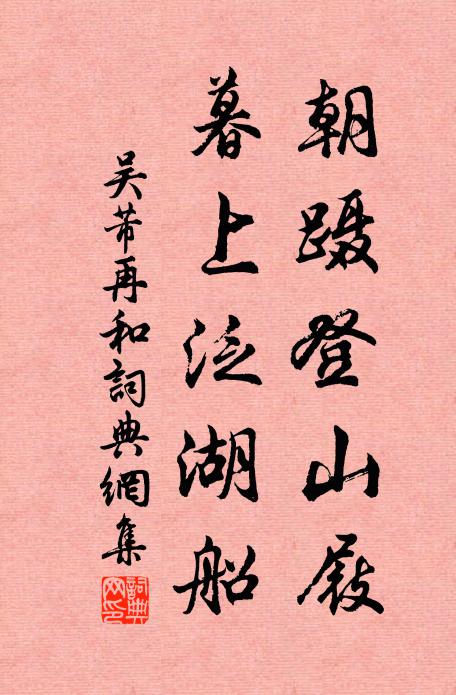 朝蹑登山屐
暮上泛湖船
吴芾再和詞典網集
詞典網印